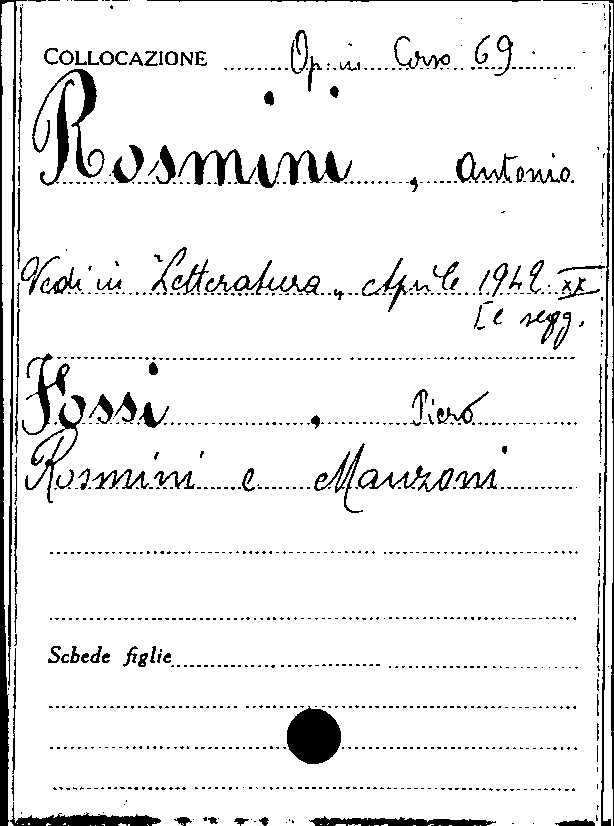 COLLOCAZIONE Op. in Corso 69
Rosmini, Antonio
Vedi in "Letteratura", Aprile 1942 XX
[e segg.
Fossi, Piero
Rosmini e Manzoni
Schede figlie